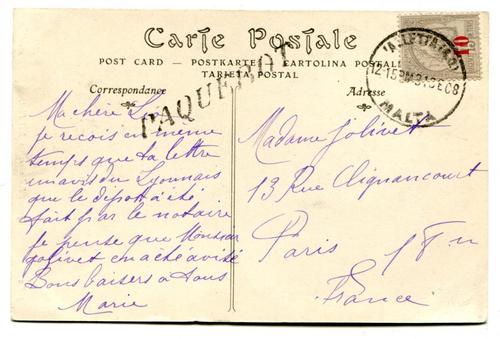 Carte Postale
POST CARD — POSTKARTE — CARTOLINA POSTALE
TARJETA POSTAL
Correspondance
Adresse
PAQUEBOT
VALLETTA
12-15PM 31 DEC 08
MALTA
10
Ma chère
je recois en meme
temps que ta lettre
un avis du Lyonnais
que le dépot a été
fait par le notaire
je pense que Monsieur
jolivet en a été avisé
Bons baisers a tous
Marie
Madame Jolivet
13 Rue Clignancourt
Paris
France